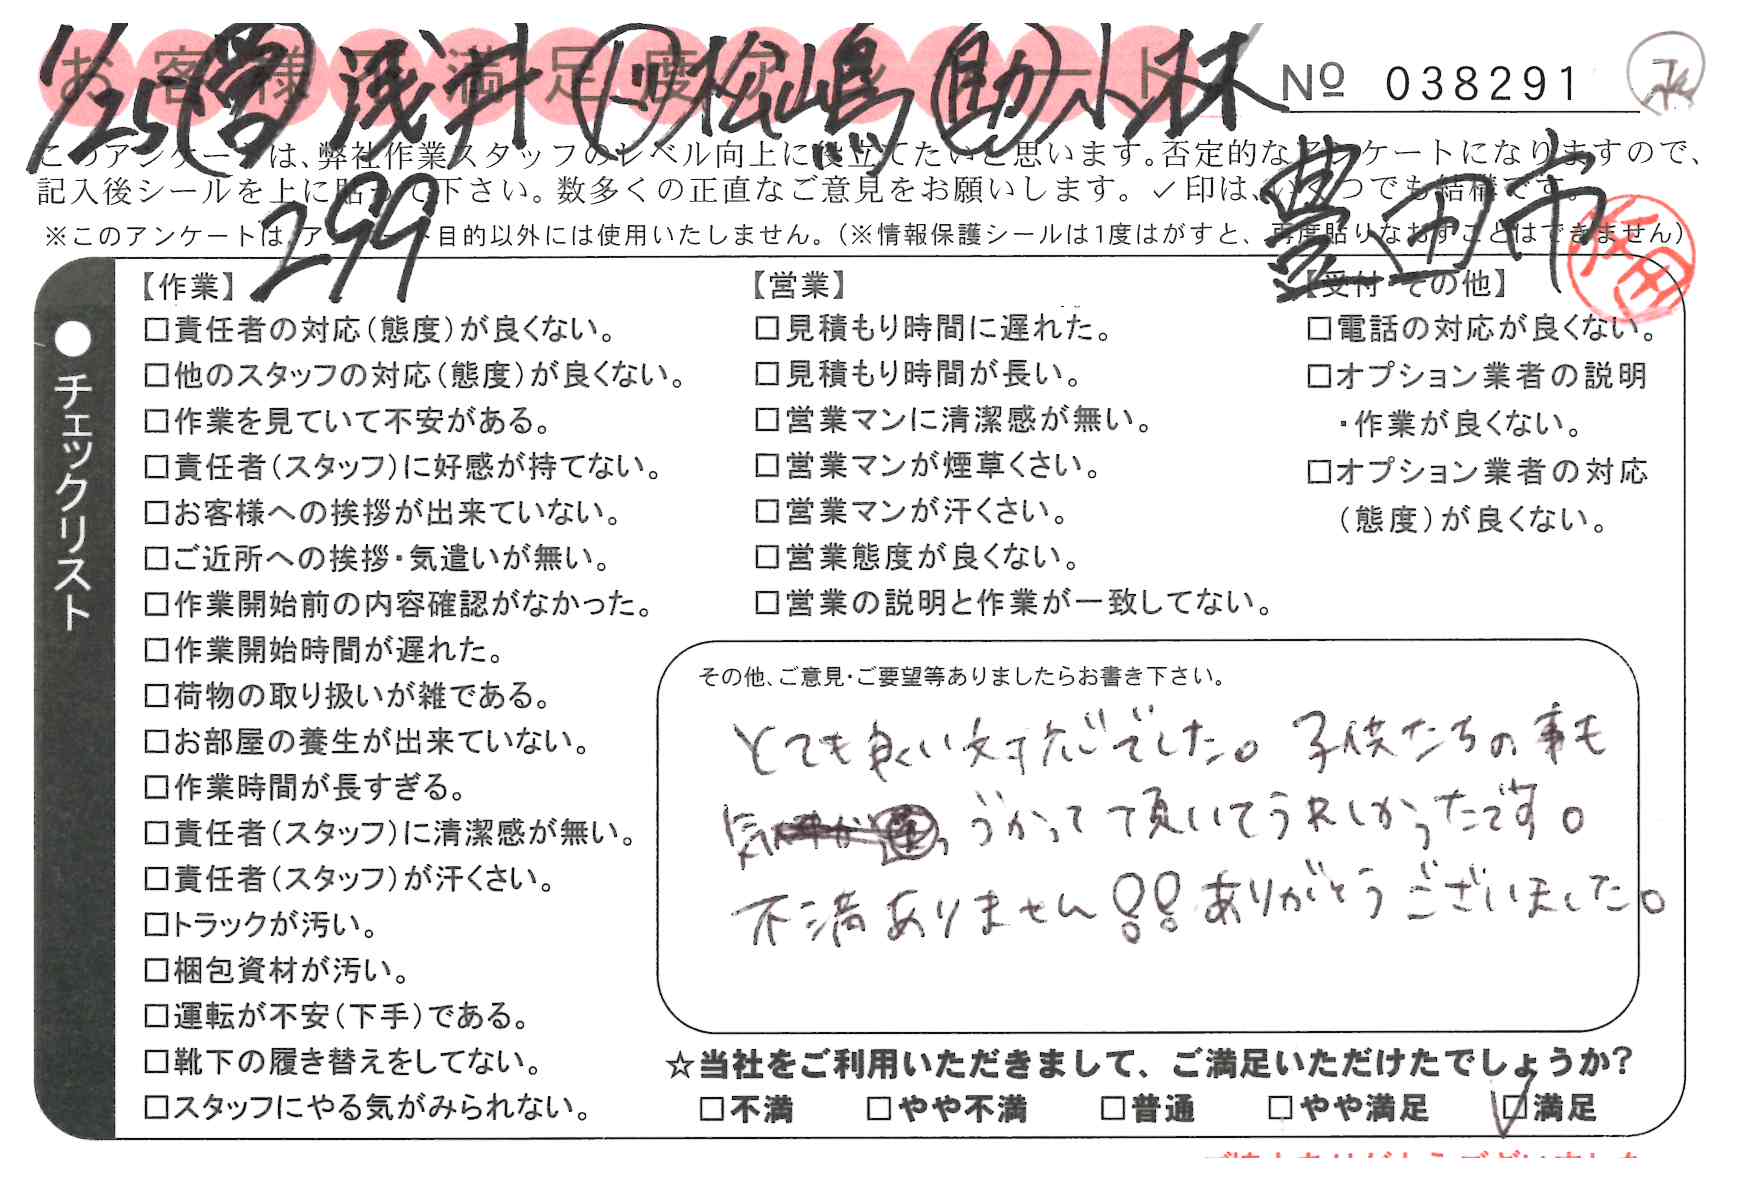 お客様満足度アンケート
1/25 営 浅井 ド 松島 助 小林
No 038291
豊田市
299
このアンケートは、弊社作業スタッフのレベル向上に役立てたいと思います。否定的なアンケートになりますので、
記入後シールを上に貼って下さい。数多くの正直なご意見をお願いします。✓印は、いくつでも結構です。
※このアンケートは、アンケート目的以外には使用いたしません。（※情報保護シールは1度はがすと、再度貼りなおすことはできません）
●チェックリスト
【作業】
□責任者の対応（態度）が良くない。
□他のスタッフの対応（態度）が良くない。
□作業を見ていて不安がある。
□責任者（スタッフ）に好感が持てない。
□お客様への挨拶が出来ていない。
□ご近所への挨拶・気遣いが無い。
□作業開始前の内容確認がなかった。
□作業開始時間が遅れた。
□荷物の取り扱いが雑である。
□お部屋の養生が出来ていない。
□作業時間が長すぎる。
□責任者（スタッフ）に清潔感が無い。
□責任者（スタッフ）が汗くさい。
□トラックが汚い。
□梱包資材が汚い。
□運転が不安（下手）である。
□靴下の履き替えをしてない。
□スタッフにやる気がみられない。
【営業】
□見積もり時間に遅れた。
□見積もり時間が長い。
□営業マンに清潔感が無い。
□営業マンが煙草くさい。
□営業マンが汗くさい。
□営業態度が良くない。
□営業の説明と作業が一致してない。
【受付・その他】
□電話の対応が良くない。
□オプション業者の説明
・作業が良くない。
□オプション業者の対応
（態度）が良くない。
その他、ご意見・ご要望等ありましたらお書き下さい。
とても良い対応でした。子供たちの事も
気づかって頂いてうれしかったです。
不満ありません!!ありがとうございました。
☆当社をご利用いただきまして、ご満足いただけたでしょうか?
□不満 □やや不満 □普通 □やや満足 ☑満足